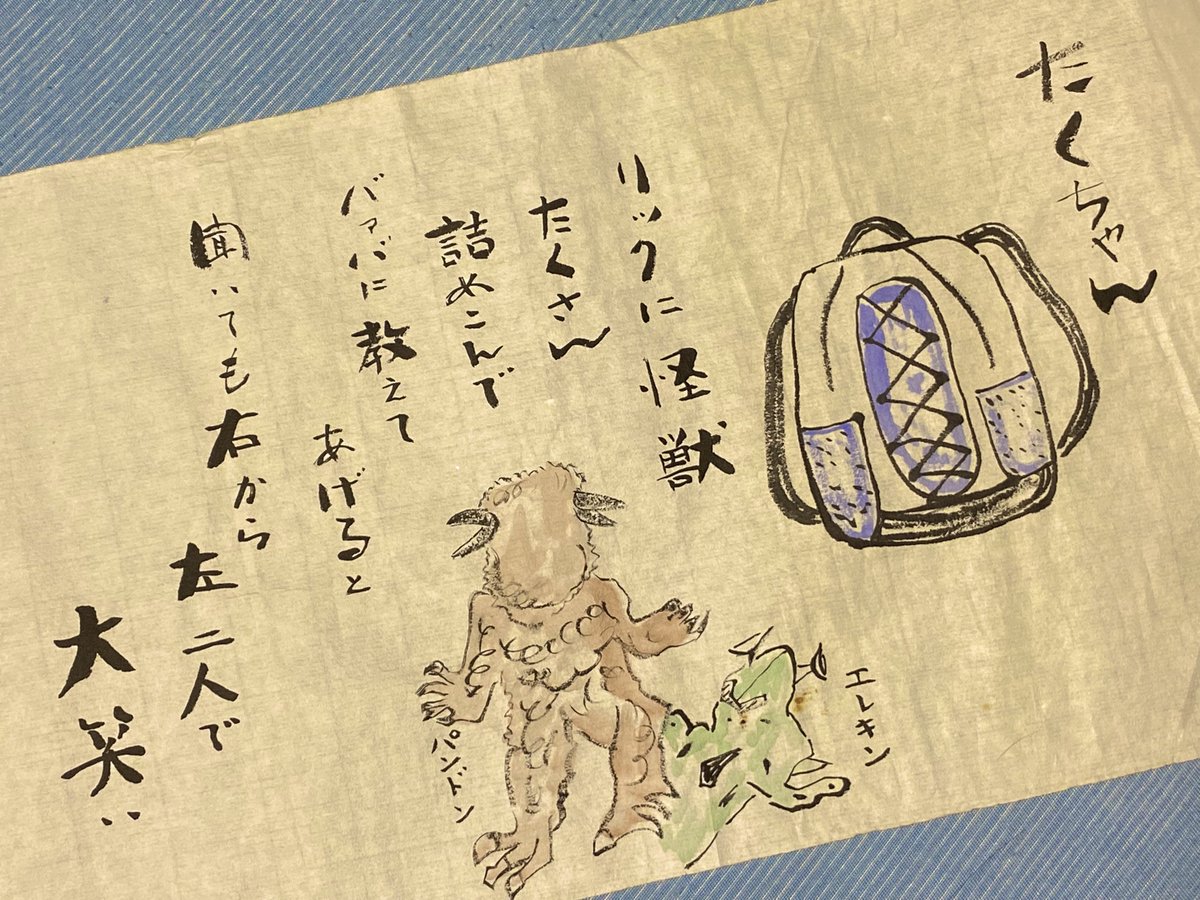 たくちゃん
リックに怪獣
たくさん
詰めこんで
バァバに教えて
あげると
聞いても右から
左 二人で
大笑い
パンドン
エレキン